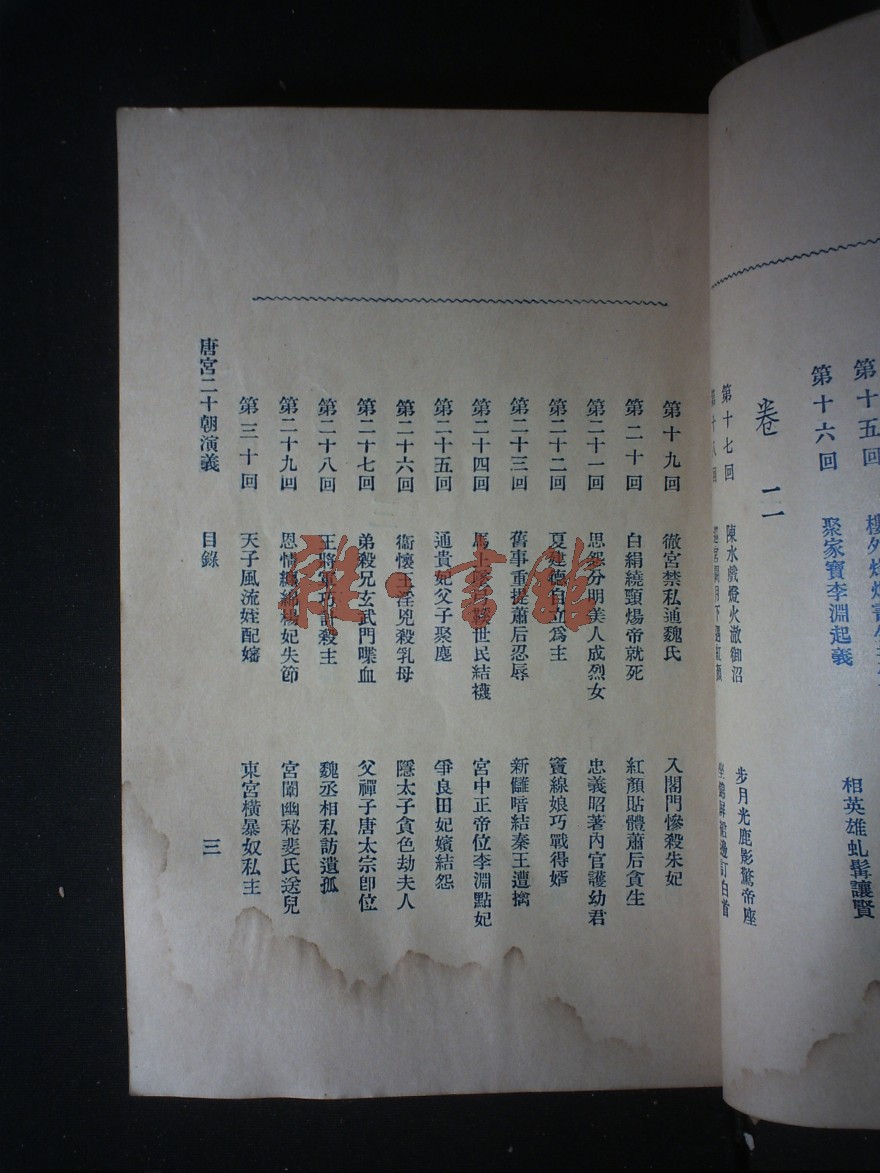 第十五回
第十六回 聚家寶李淵起義 相英雄虬髯讓賢
卷二
第十七回 陳水戲燈火澈御沼 步月光鹿影驚帝座
第十八回
第十九回 徹宮禁私通魏氏 入閣門慘殺朱妃
第二十回 白絹繞頸煬帝就死 紅顏貼體蕭后貪生
第二十一回 思怨分明美人成烈女 忠義昭著內官護幼君
第二十二回 夏建德自立爲主 竇線娘巧戰得婿
第二十三回 舊事重提蕭后忍辱 新讎暗結秦王遭擒
第二十四回 馬上 世民結襪 宮中正帝位李淵點妃
第二十五回 通貴妃父子聚麀 爭良田妃嬪結怨
第二十六回 衞懷王淫兇殺乳母 隱太子貪色劫夫人
第二十七回 弟殺兄玄武門喋血 父禪子唐太宗卽位
第二十八回 王將軍巧計殺主 魏丞相私訪遺孤
第二十九回 恩情纏綿楊妃失節 宮闈幽秘斐氏送兒
第三十回 天子風流姪配嬸 東宮橫暴奴私主
唐宮二十朝演義 目錄 三
雜·書館